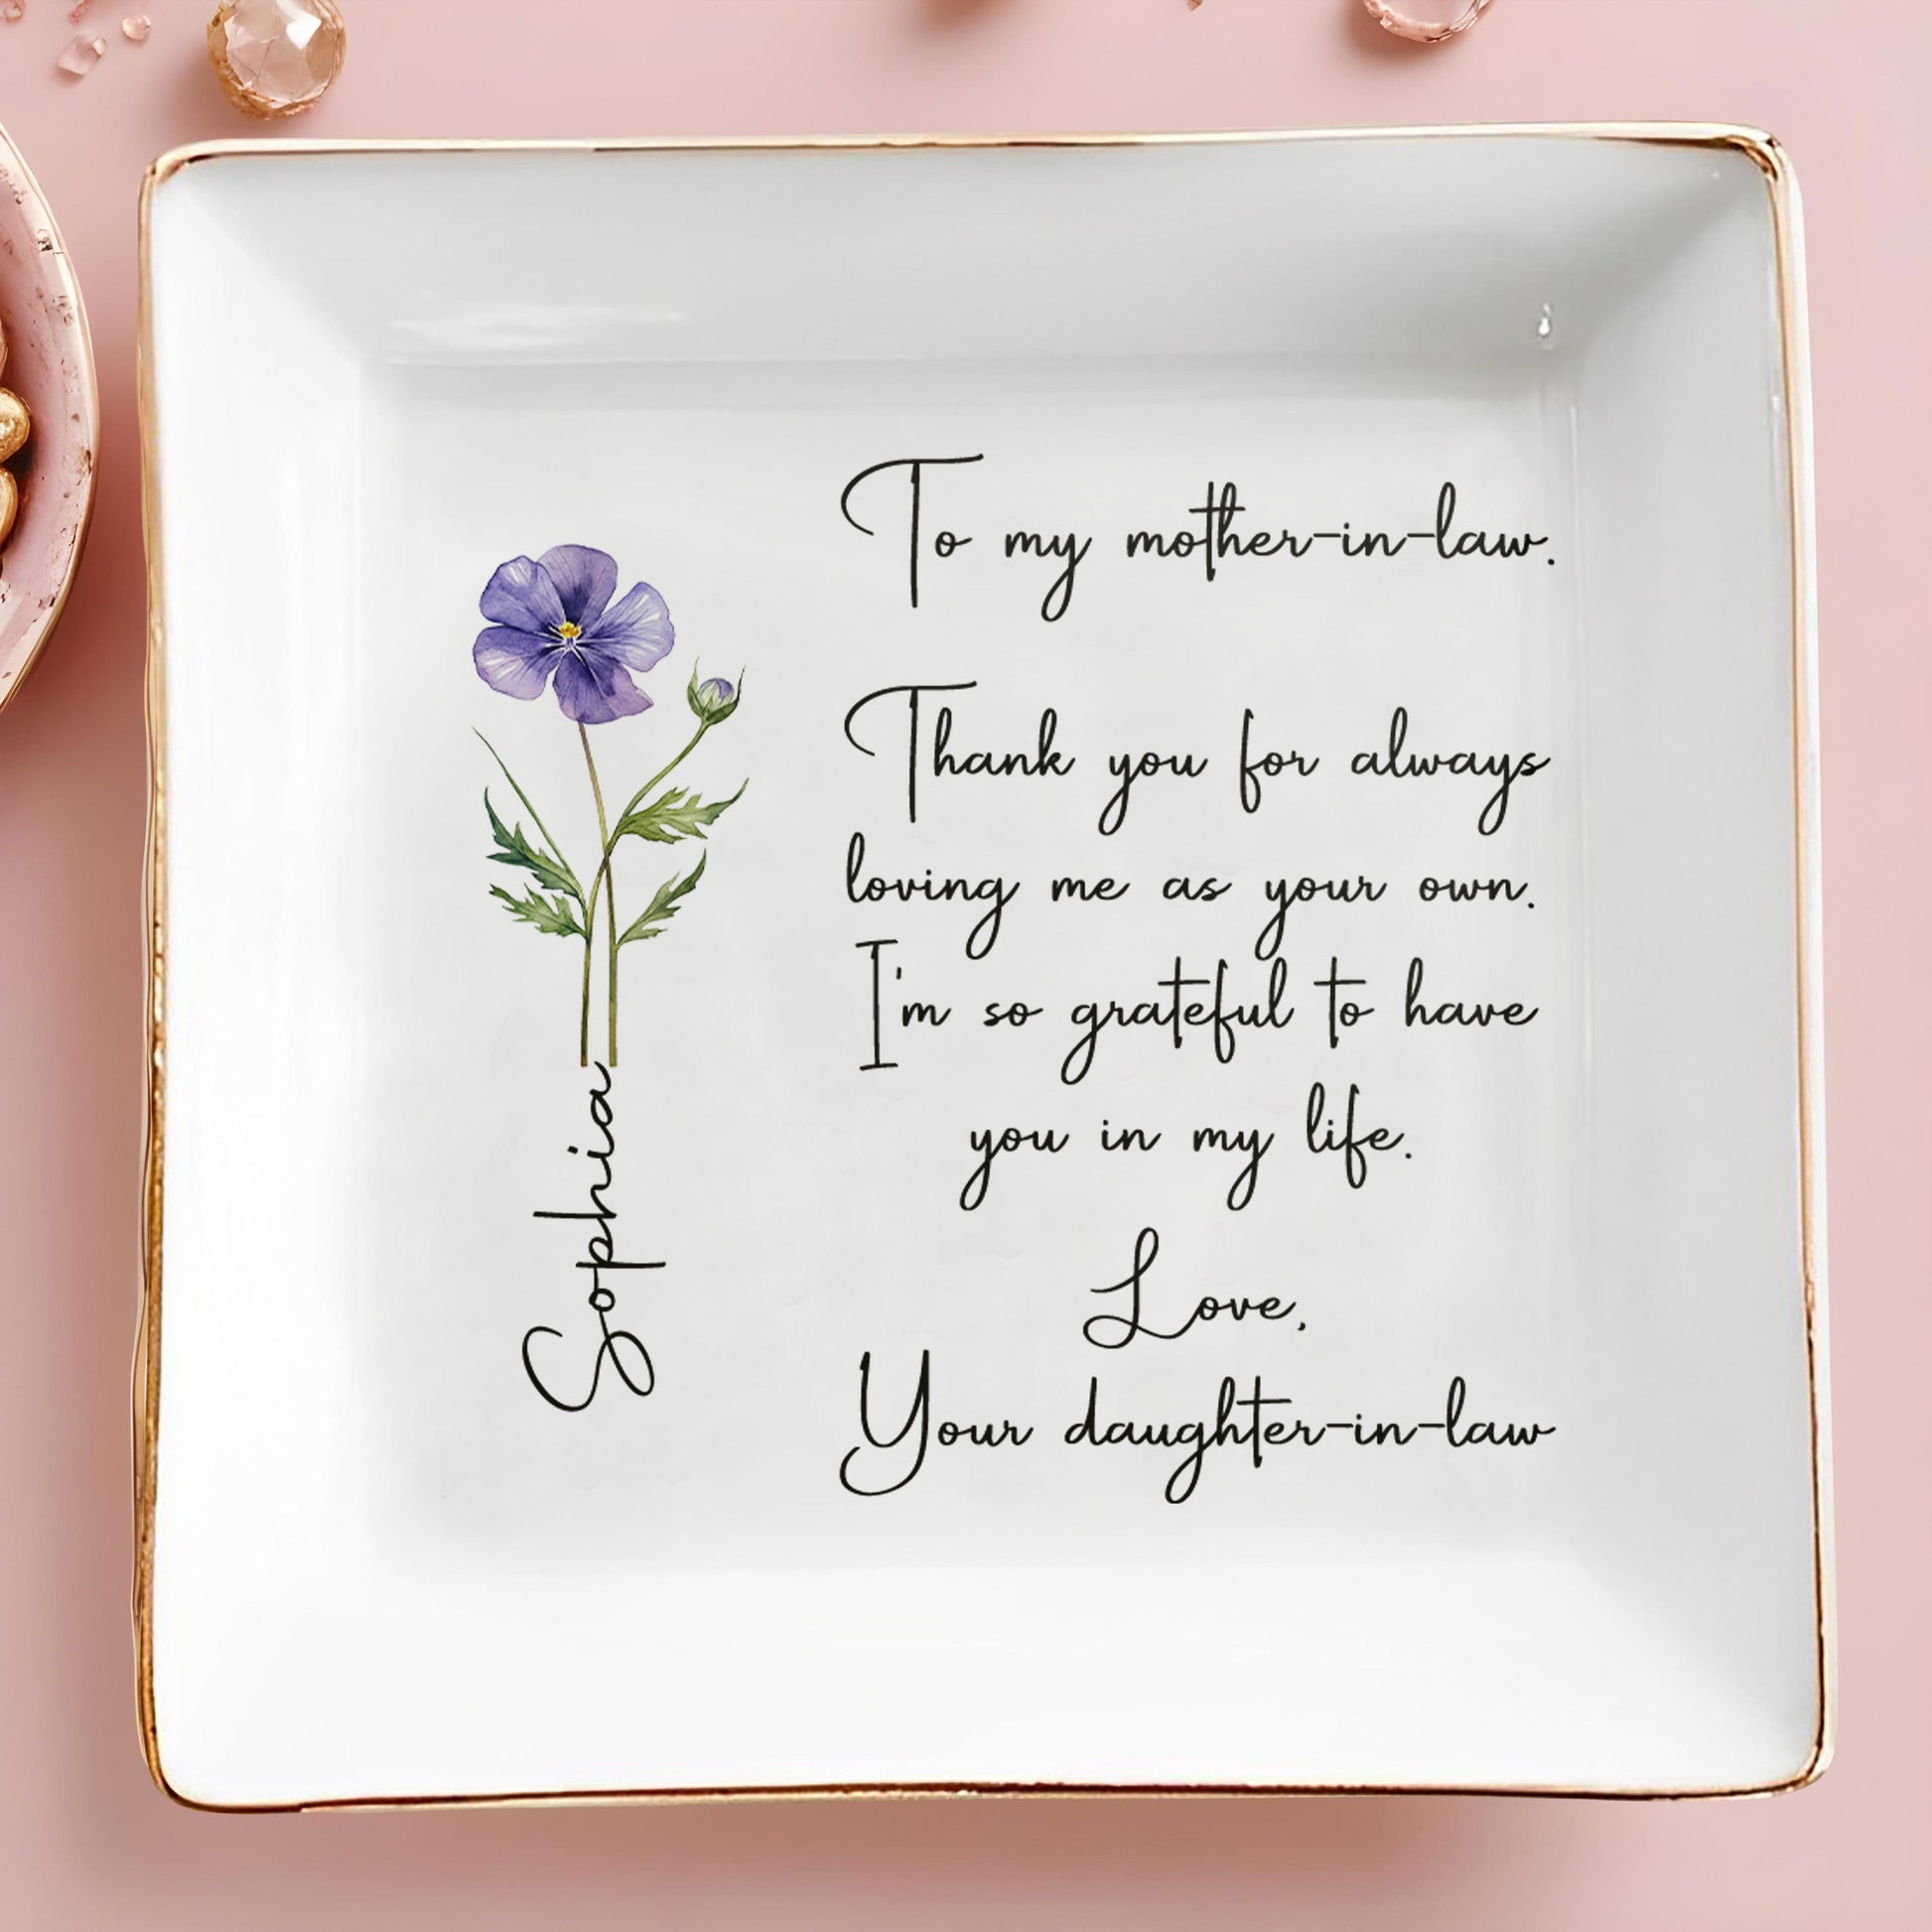 Sophia
To my mother-in-law.
Thank you for always
loving me as your own.
I'm so grateful to have
you in my life.
Love,
Your daughter-in-law